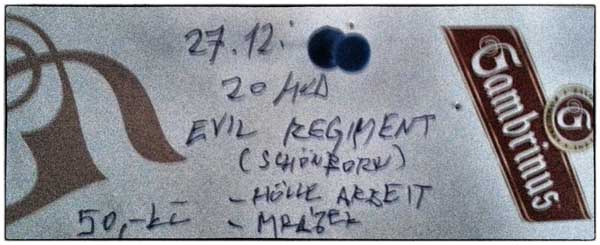 27.12.
20 HOD
EVIL REGIMENT
(SCHÖNBORN)
- HÖLLE ARBEIT
50,-Kč - MRÁZEK
Gambrinus
G